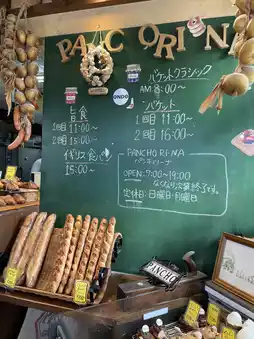 PANCHORINA
バゲットクラシック
AM 8:00〜
食
1回目 11:00〜
2回目 15:00〜
イギリス食パン
15:00〜
ONDO
バゲット
1回目 11:00〜
2回目 16:00〜
PANCHORI-NA
パンチョリーナ
OPEN: 7:00〜19:00
なくなり次第終了です。
定休日:日曜日・月曜日
PANCHO